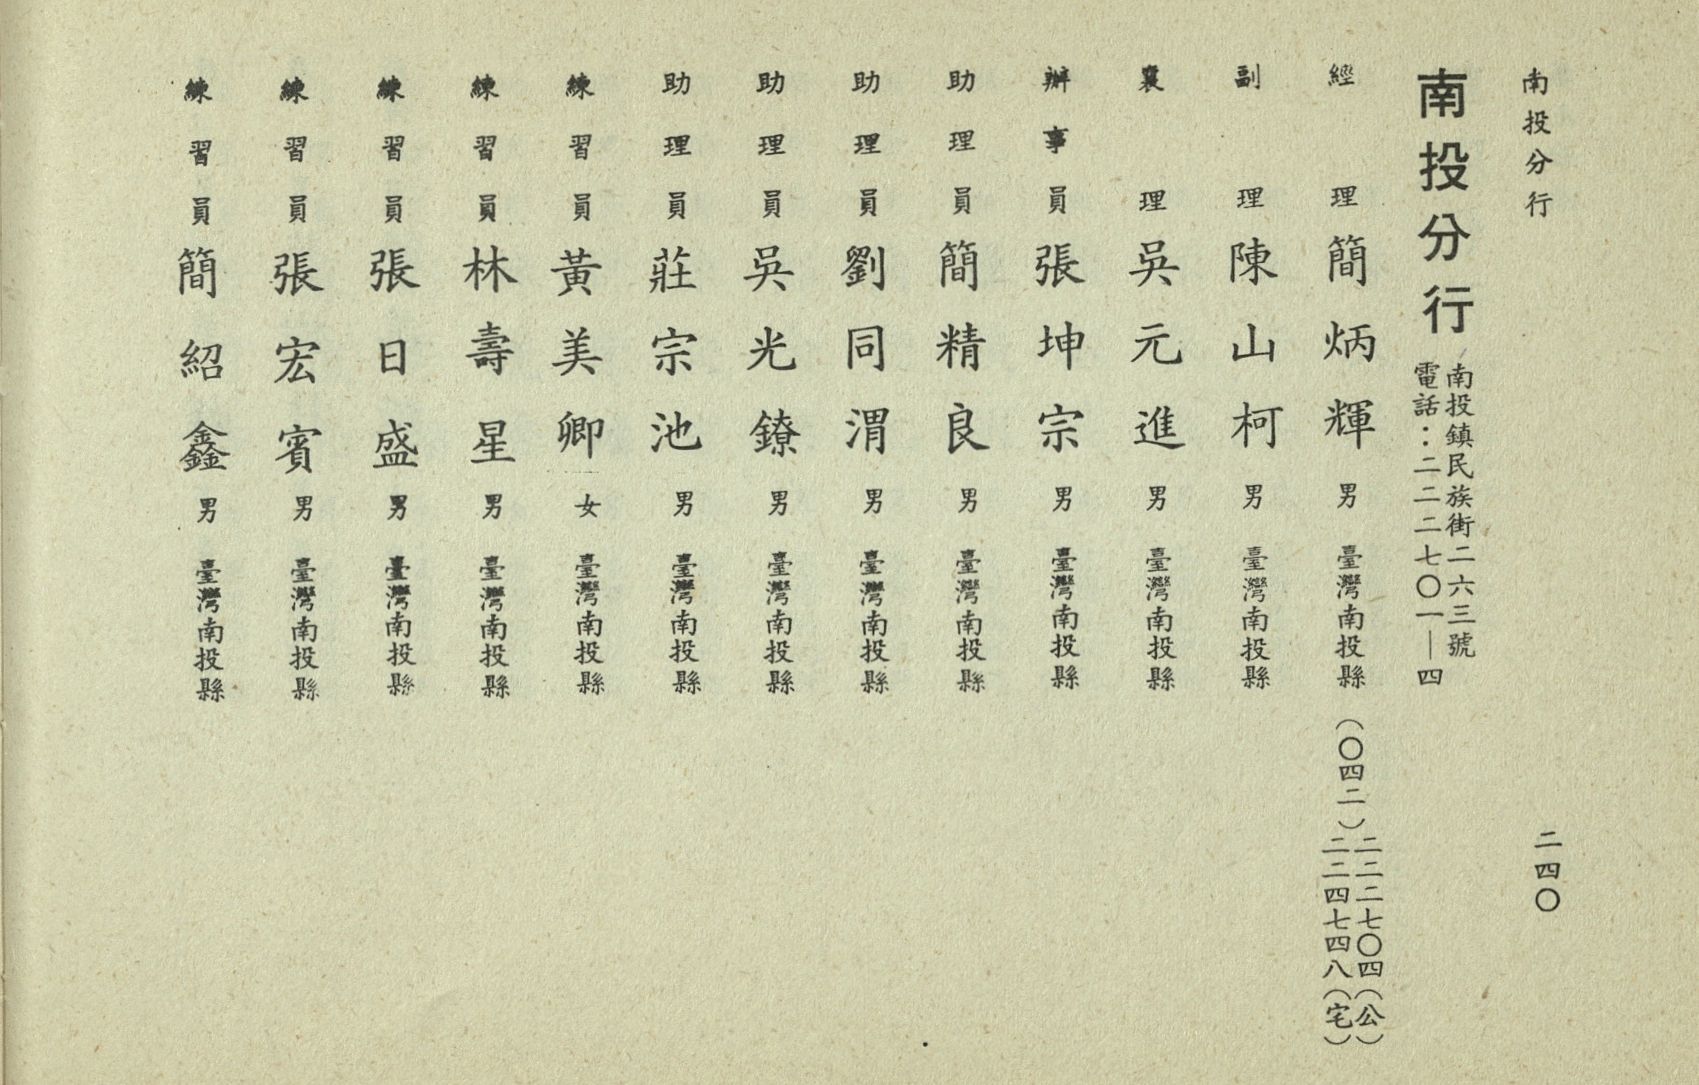 南投分行
二四〇
南投分行
南投鎮民族街二六三號
電話：二二二七〇一—四
經理 簡炳輝 男 臺灣南投縣 （〇四二）二二二七〇四（公）
二二四七四八（宅）
副理 陳山柯 男 臺灣南投縣
襄理 吳元進 男 臺灣南投縣
辦事員 張坤宗 男 臺灣南投縣
助理員 簡精良 男 臺灣南投縣
助理員 劉同渭 男 臺灣南投縣
助理員 吳光鐐 男 臺灣南投縣
助理員 莊宗池 男 臺灣南投縣
練習員 黃美卿 女 臺灣南投縣
練習員 林壽星 男 臺灣南投縣
練習員 張日盛 男 臺灣南投縣
練習員 張宏賓 男 臺灣南投縣
練習員 簡紹鑫 男 臺灣南投縣